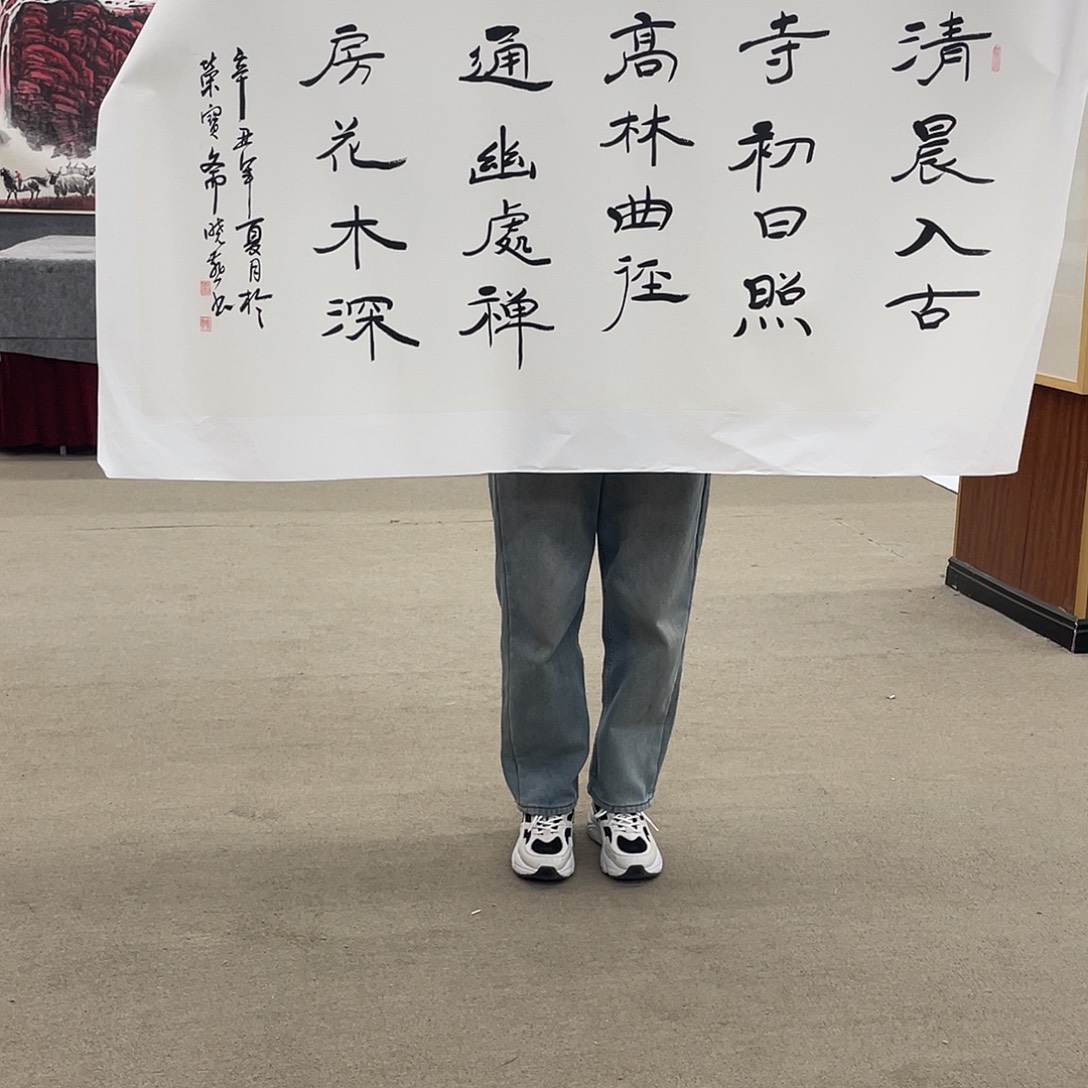 清晨入古
寺初日照
高林曲径
通幽處禅
房花木深
辛丑年夏月於
榮寶斋晓燕书